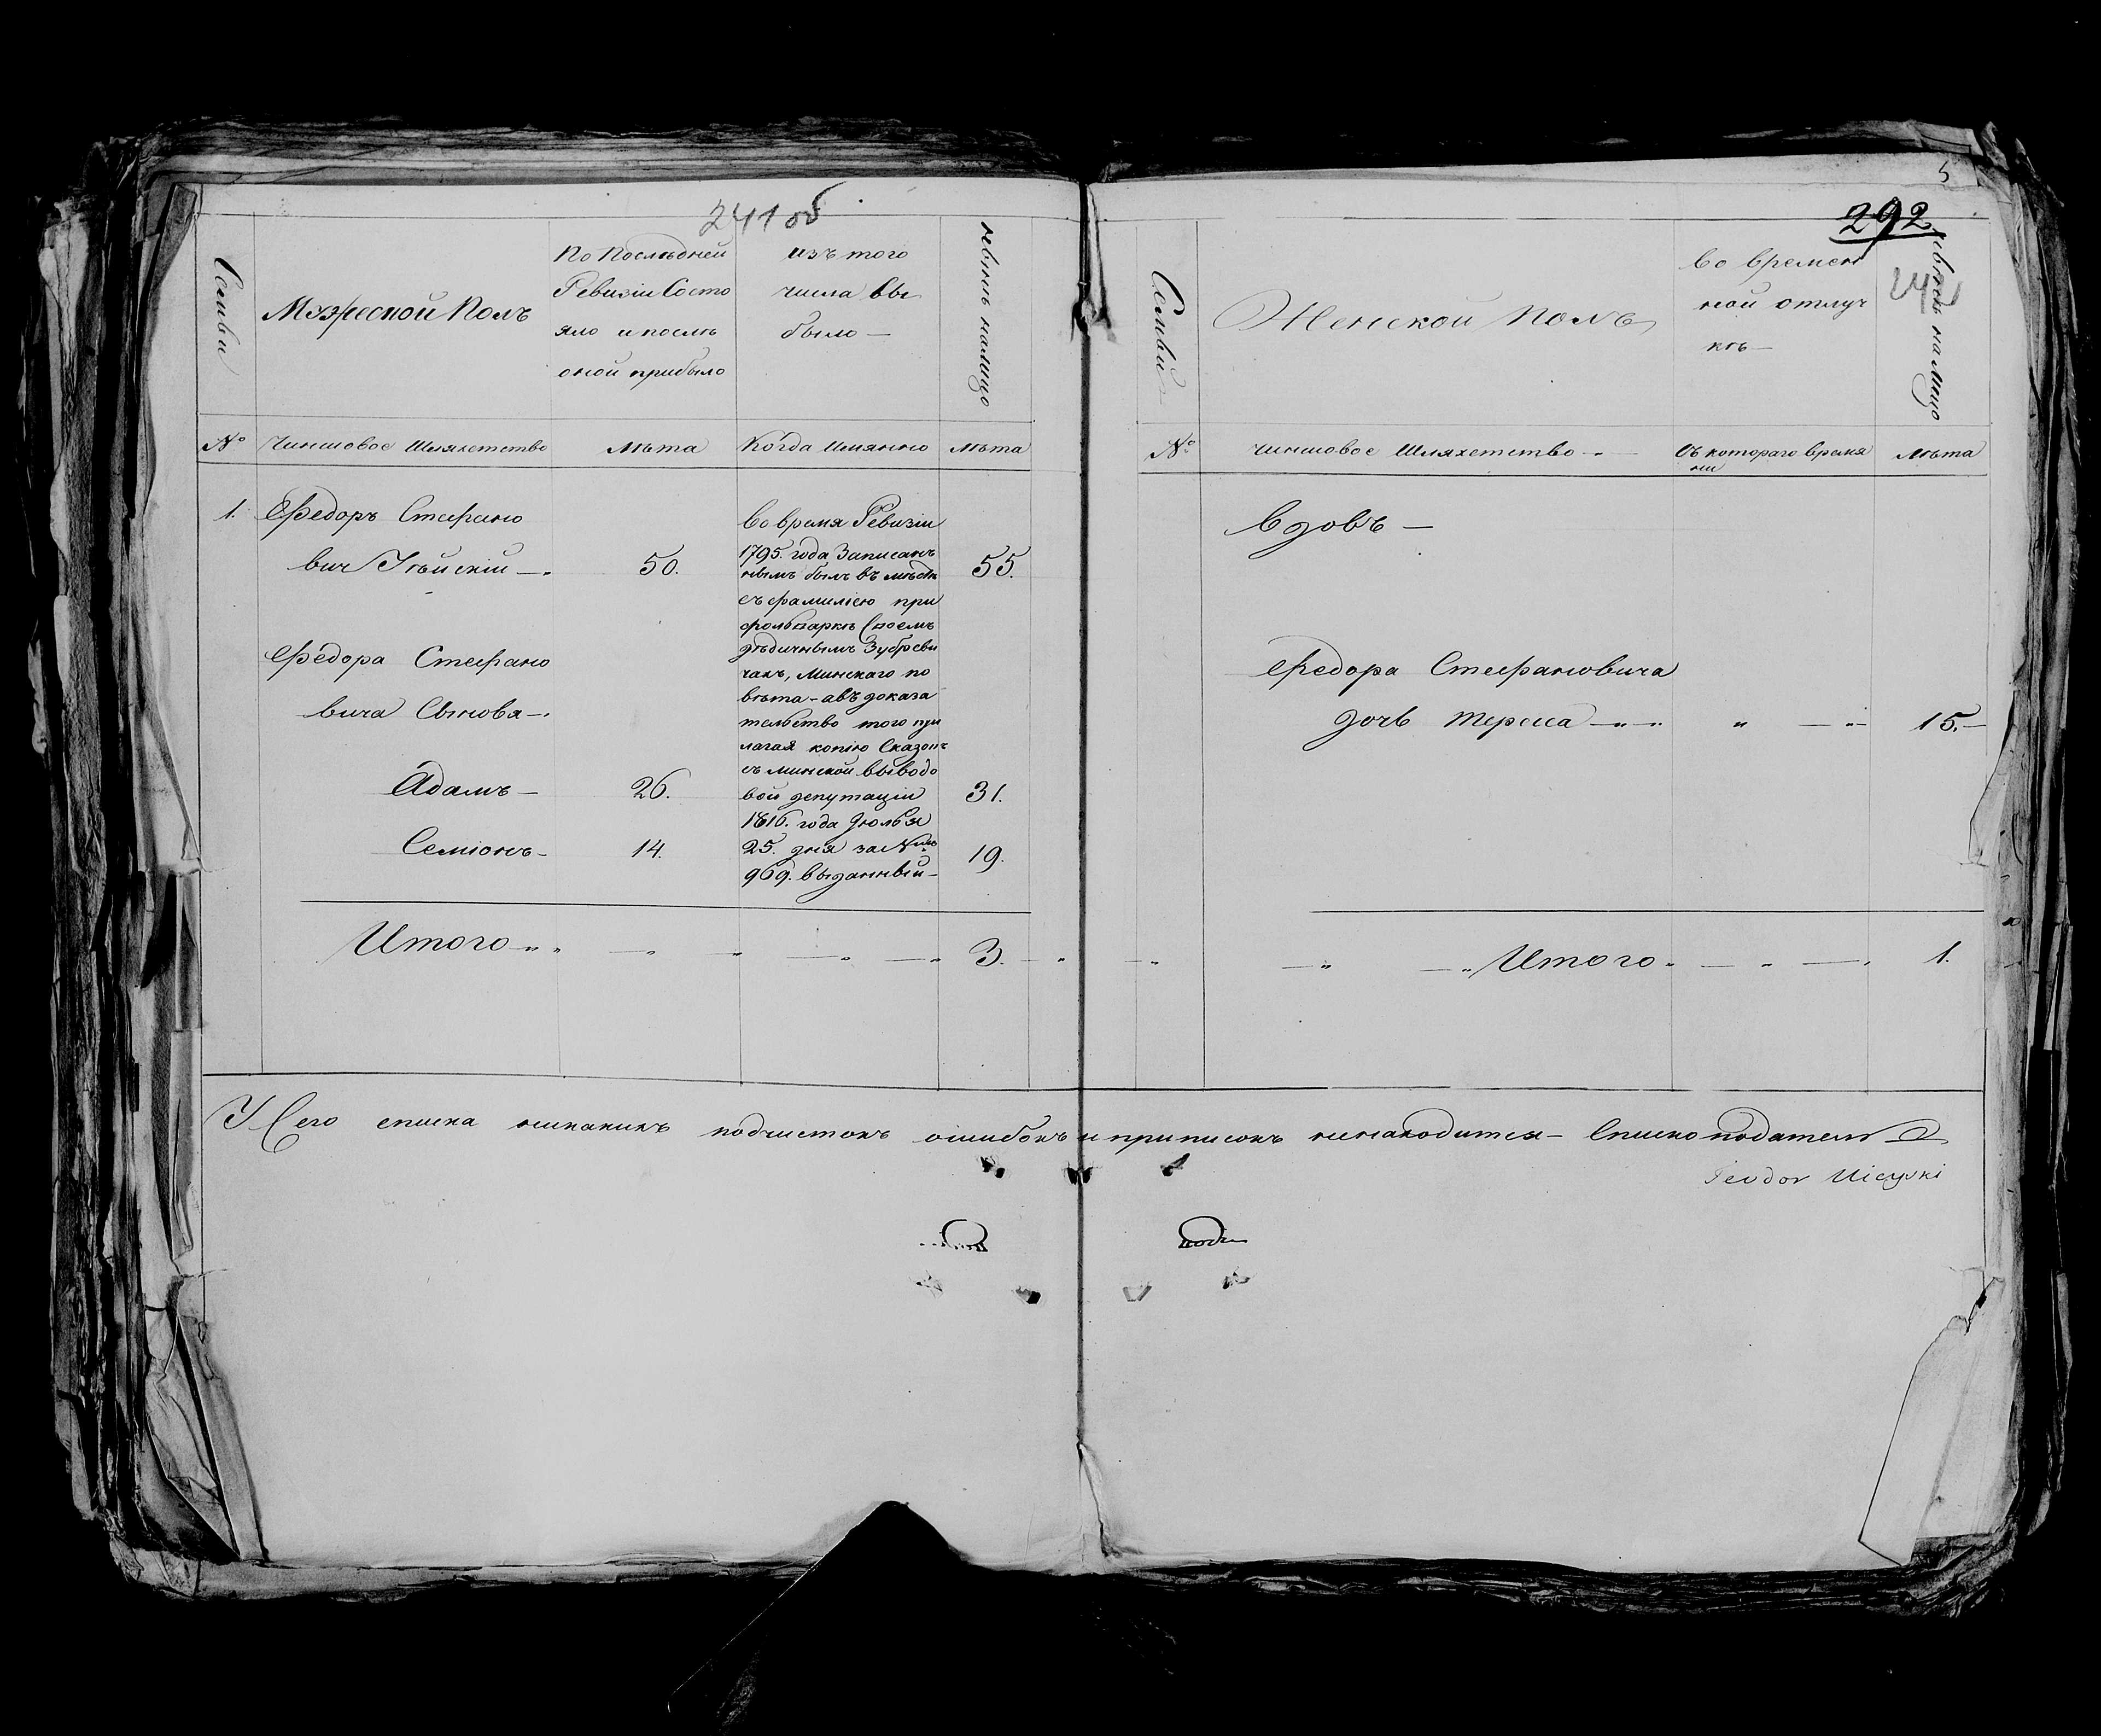 241 об
5
292
242
Семьи
Мужеской Полъ
По Последней
Ревизіи Состо
яло и после
оной прибыло
изъ того
числа вы
было —
ныне налицо
№ Чиншовое Шляхетство Лѣта Когда Имянно Лѣта
1. Федоръ Стефано
вич 50. 55.
Во время Ревизіи
1795. года Записан
нымъ былъ въ
съ фамиліею при
фольварке Своемъ
дедичнымъ Зубреви
чахъ, Минскаго по
вета – а въ доказа
тельство того при
лагая копію Сказон
съ минской выводо
вой депутаціи
1816. года Июля
25. дня за №мъ
969. выданный –
Федора Стефано
вича Сынова —
Адамъ — 26. 31.
Семіонъ — 14. 19.
Итого 3.
Семьи
Женской Полъ
Во времен
ной отлуч
ке —
ныне налицо
№ Чиншовое Шляхетство — Съ котораго время
ни Лѣта
Вдовъ —
Федора Стефановича
дочь Тереса — 15. —
Итого 1.
У Сего списка никакихъ подчистокъ ошибокъ и приписокъ ненаходится — Списко податель
Teodor Uieyski